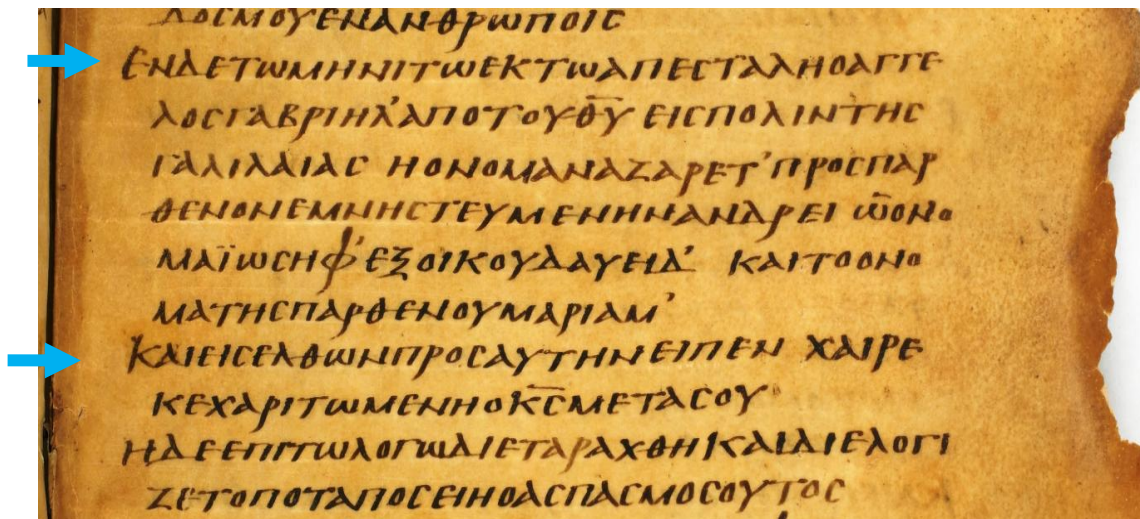 ΛΟCΜΟΥΕΝΑΝΘΡΩΠΟΙC
ΕΝΔΕΤΩΜΗΝΙΤΩΕΚΤΩΑΠΕCΤΑΛΗΟΑΓΓΕ
ΛΟCΓΑΒΡΙΗΛ᾿ΑΠΟΤΟΥΘ̅Υ̅ ΕΙCΠΟΛΙΝΤΗC
ΓΑΛΙΛΑΙΑC ΗΟΝΟΜΑΝΑΖΑΡΕΤ᾿ΠΡΟCΠΑΡ
ΘΕΝΟΝΕΜΝΗCΤΕΥΜΕΝΗΝΑΝΔΡΕΙ ΩΟΝΟ
ΜΑΪΩCΗΦ᾿ΕΞΟΙΚΟΥΔΑΥΕΙΔ᾿ ΚΑΙΤΟΟΝΟ
ΜΑΤΗCΠΑΡΘΕΝΟΥΜΑΡΙΑΜ᾿
ΚΑΙΕΙCΕΛΘΩΝΠΡΟCΑΥΤΗΝΕΙΠΕΝ ΧΑΙΡΕ
ΚΕΧΑΡΙΤΩΜΕΝΗΟΚ̅C̅ΜΕΤΑCΟΥ
ΗΔΕΕΠΙΤΩΛΟΓΩΔΙΕΤΑΡΑΧΘΗΚΑΙΔΙΕΛΟΓΙ
ΖΕΤΟΠΟΤΑΠΟCΕΙΗΟΑCΠΑCΜΟCΟΥΤΟC